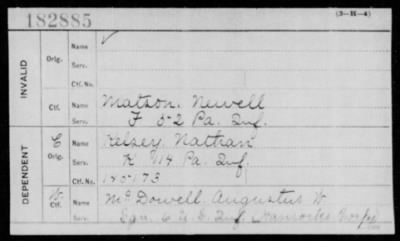 182885
(3—H—4)
INVALID
Orig.
Name
Serv.
Ctf. No.
Ctf.
Name Matson, Newell
Serv. F 52 Pa. Inf.
DEPENDENT
C
Orig.
Name Kelsey, Nathan
Serv. K 114 Pa. Inf.
Ctf. No. 180173
W.
Ctf.
Name McDowell, Augustus W
Serv. 6 U.S. Inf. Hancocks Corps